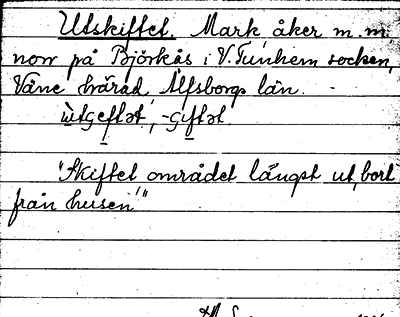 Utskiftet. Mark, åker m.m.
norr på Björkås i V. Tunhem socken,
Väne härad Älfsborgs län.
ùtʃeftət, -ʃiftət
"Skiftet området längst ut, bort
från husen"